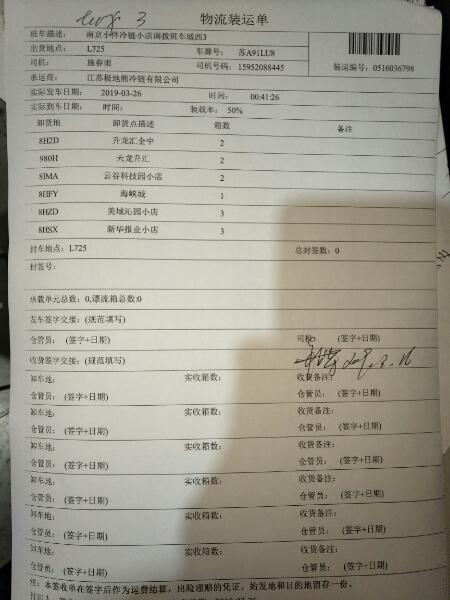 3
物流装运单
班车描述: 南京小件冷链小店调拨班车城西3
出货地点: L725 车牌号: 苏A91LU8
司机: 施春雨 司机号码: 15952088445 装运编号: 0516036798
承运商: 江苏极地熊冷链有限公司
实际发车日期: 2019-03-26 时间: 00:41:26
实际到车日期: 时间: 装载率: 50%
卸货地 卸货点描述 箱数 备注
8H2D 升龙汇金中 2
980H 天龙升汇 2
8IMA 云谷科技园小店 2
8HFY 海峡城 1
8HZD 美域沁园小店 3
8HSX 新华报业小店 3
封车地点: L725 总封签数: 0
封签号:
承载单元总数: 0,漂流箱总数:0
发车签字交接: (规范填写)
仓管员: (签字+日期) 司机: (签字+日期)
收货签字交接: (规范填写)
卸车地: 实收箱数: 收货备注:
仓管员: (签字+日期) 仓管员: (签字+日期)
卸车地: 实收箱数: 收货备注:
仓管员: (签字+日期) 仓管员: (签字+日期)
卸车地: 实收箱数: 收货备注:
仓管员: (签字+日期) 仓管员: (签字+日期)
卸车地: 实收箱数: 收货备注:
仓管员: (签字+日期) 仓管员: (签字+日期)
卸车地: 实收箱数: 收货备注:
仓管员: (签字+日期) 仓管员: (签字+日期)
卸车地: 实收箱数: 收货备注:
仓管员: (签字+日期) 仓管员: (签字+日期)
注: 本签收单在签字后作为运费结算, 出险理赔的凭证、始发地和目的地留存一份。